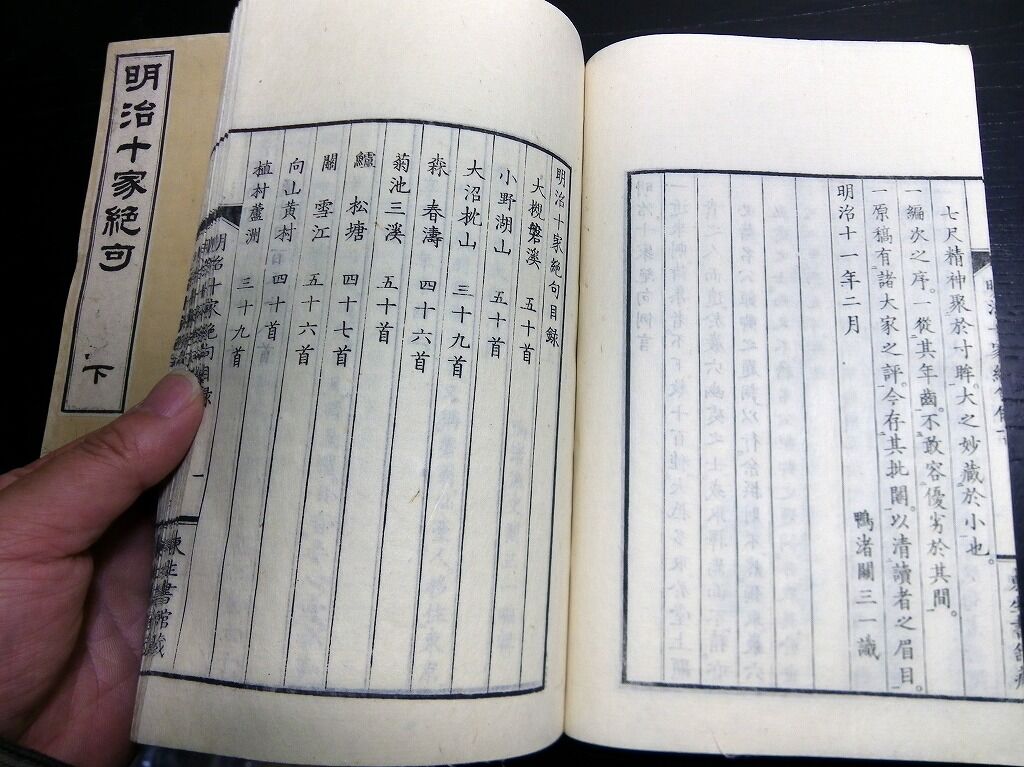 七尺精神聚於寸眸。大之妙藏於小也。
一編次之序。一從其年齒。不敢容優劣於其間。
一原稿有諸大家之評。今存其批圈。以清讀者之眉目。
明治十一年二月
鴨渚關三一識
明治十家絶句目録
大槻磐溪 五十首
小野湖山 五十首
大沼枕山 三十九首
森 春濤 四十六首
菊池三溪 五十首
鱸 松塘 四十七首
關 雪江 五十六首
向山黄村 四十首
植村蘆洲 三十九首
明治十家絶句目録
一
書館藏
明治十家絶句
下